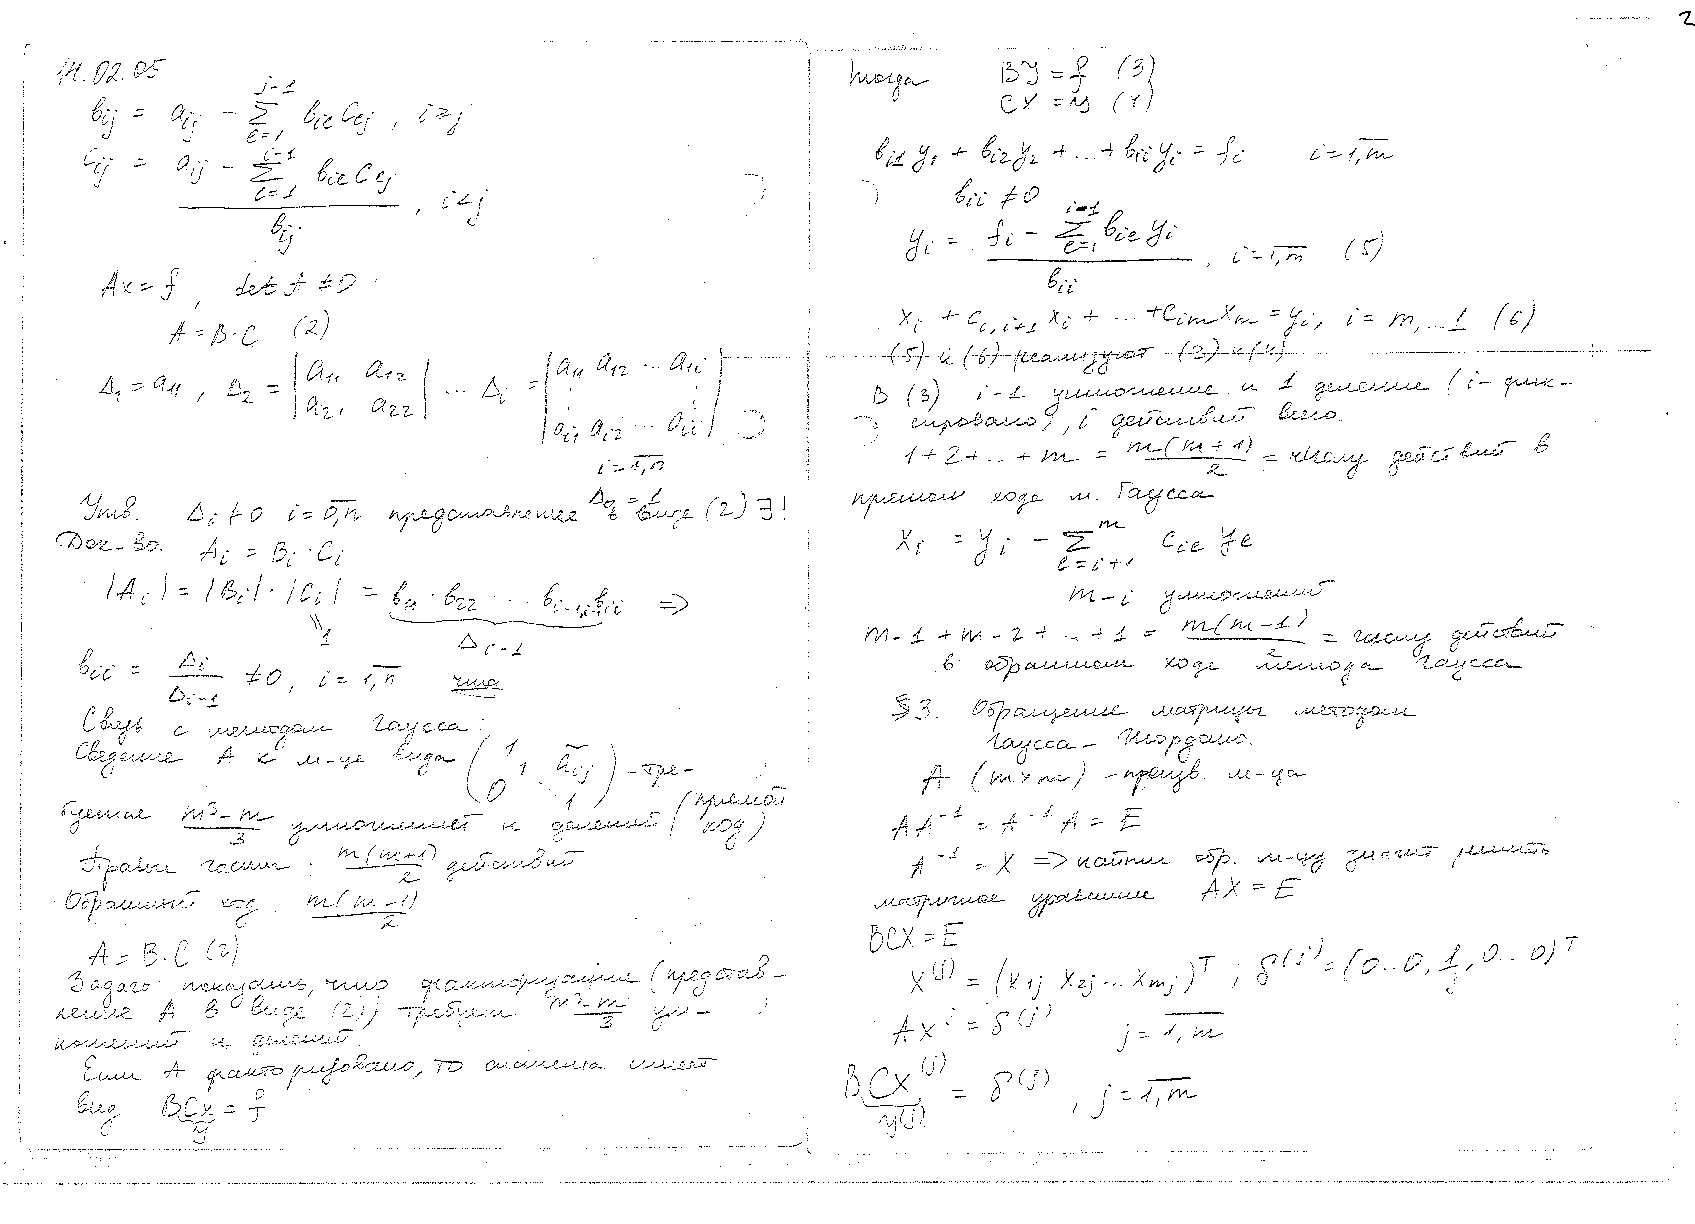 2
14.02.05
bij = aij − Σ_{l=1}^{j-1} bil clj , i≥j
cij = (aij − Σ_{l=1}^{i-1} bil clj) / bij , i<j
Ax = f , det A ≠ 0
A = B·C (2)
Δ1 = a11 , Δ2 = |a11 a12; a21 a22| ... Δi = |a11 a12 ... a1i; ⋮ ; ai1 ai2 ... aii|
i = 1,n
Δ0 = 1
Утв. Δi ≠ 0 i = 0,n представление в виде (2) ∃!
Док-во. Ai = Bi · Ci
|Ai| = |Bi| · |Ci| = b11 · b22 ... bi-1,i-1 bii ⇒
1 Δi-1
bii = Δi / Δi-1 ≠ 0, i = 1,n чтд
Связь с методом Гаусса:
Сведение A к м-це вида (1 1 ãij 0 1) − тре-
буется (m³−m)/3 умножений и делений (прямой ход)
Правые части: m(m+1)/2 действий
Обратный ход m(m−1)/2
A = B·C (2)
Задача: показать, что факторизация (представ-
ление A в виде (2)) требует (m³−m)/3 ум-
ножений и делений.
Если A факторизовано, то система имеет
вид BCx = f
y
Тогда BY = f (3)
CX = y (4)
bi1 y1 + bi2 y2 + ... + bii yi = fi i = 1,m
bii ≠ 0
yi = (fi − Σ_{l=1}^{i-1} bil yi) / bii , i = 1,m (5)
xi + ci,i+1 xi + ... + cim xm = yi, i = m,...1 (6)
(5) и (6) реализуют (3) и (4)
В (3) i−1 умножение и 1 деление (i − фик-
сировано), i действий всего.
1 + 2 + ... + m = m(m+1)/2 = числу действий в
прямом ходе м. Гаусса
xi = yi − Σ_{l=i+1}^{m} cil yl
m−i умножений
m−1 + m−2 + ... + 1 = m(m−1)/2 = числу действий
в обратном ходе метода Гаусса
§3. Обращение матрицы методом
Гаусса – Жордано.
A (m×m) − произв. м-ца
AA⁻¹ = A⁻¹A = E
A⁻¹ = X ⇒ найти обр. м-цу значит решить
матричное уравнение AX = E
BCX = E
X^(j) = (x1j x2j ... xmj)^T ; δ^(j) = (0...0, 1, 0...0)^T
j
Ax^j = δ^(j) j = 1,m
BCX^(j) = δ^(j) , j = 1,m
y^(j)